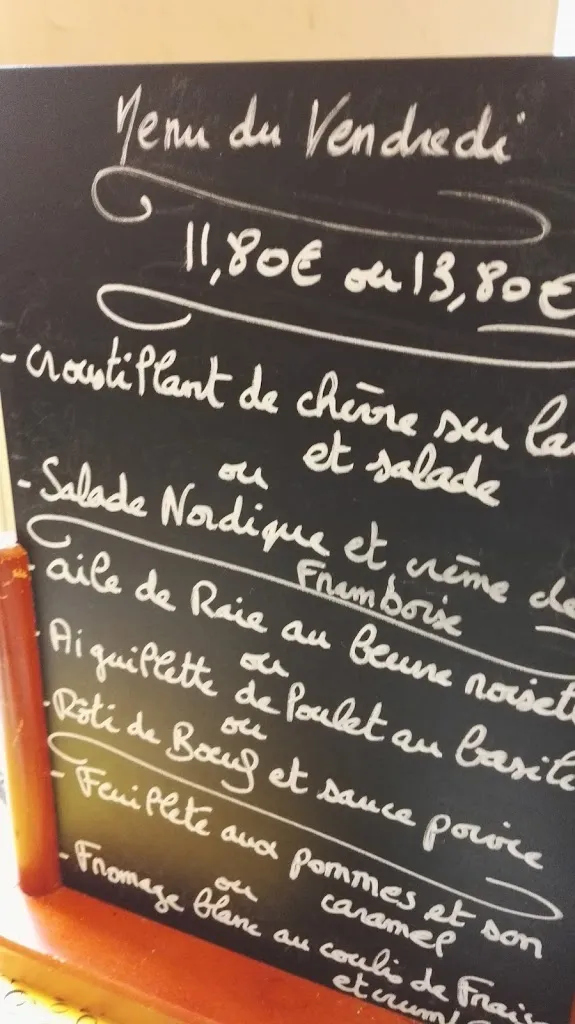 Menu du Vendredi
11,80€ ou 13,80€
- croustillant de chèvre sur la
et salade
ou
- Salade Nordique et crème de
Framboise
- aile de Raie au beurre noisett
ou
- Aiguillette de Poulet au basilic
ou
- Rôti de Boeuf et sauce poivre
- Feuilleté aux pommes et son
caramel
ou
- Fromage blanc au coulis de Frais
et crum